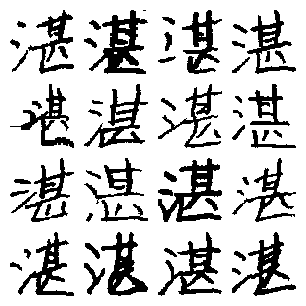 湛湛湛湛
湛湛湛湛
湛湛湛湛
湛湛湛湛